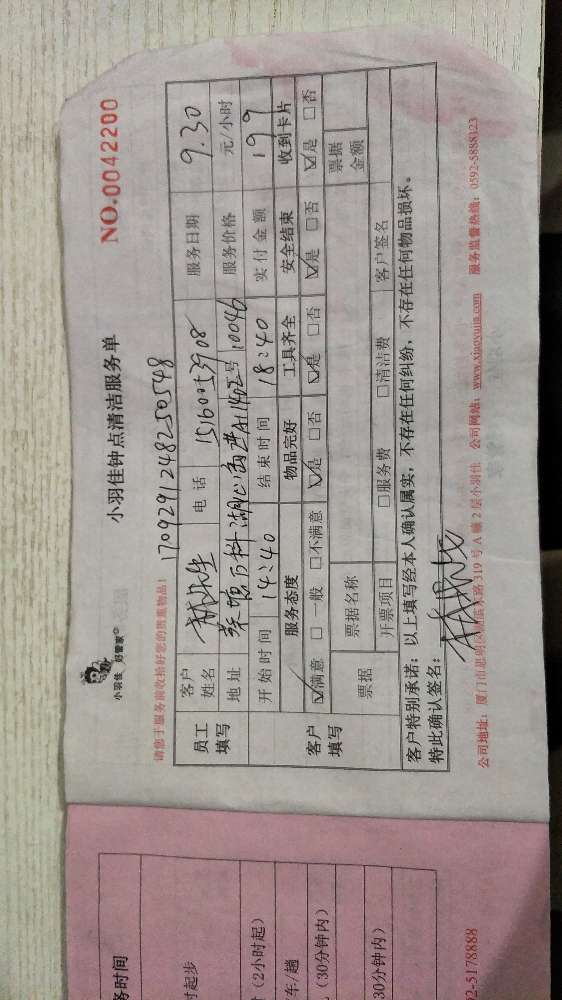 小羽佳 好管家
小羽佳钟点清洁服务单
NO.0042200
1709291248250548
请您于服务前收拾好您的贵重物品！
员工填写
客户姓名 林先生 电话 15160053908 服务日期 9.30
地址 蔡塘万科湖心岛 号 10046 服务价格 元/小时
开始时间 14:40 结束时间 18:40 实付金额 199
客户填写
服务态度 物品完好 工具齐全 安全结束 收到卡片
☑满意 □一般 □不满意 ☑是 □否 ☑是 □否 ☑是 □否 ☑是 □否
票据 票据名称 票据金额
开票项目 □服务费 □清洁费 客户签名
客户特别承诺：以上填写经本人确认属实，不存在任何纠纷，不存在任何物品损坏。
特此确认签名：
公司地址：厦门市思明区 路319号A幢2层小羽佳 公司网站：www.xiaoyujia.com 服务监督热线：0592-5888123
务时间
时起步
（2小时起）
车/趟
（30分钟内）
30分钟内）
92-5178888